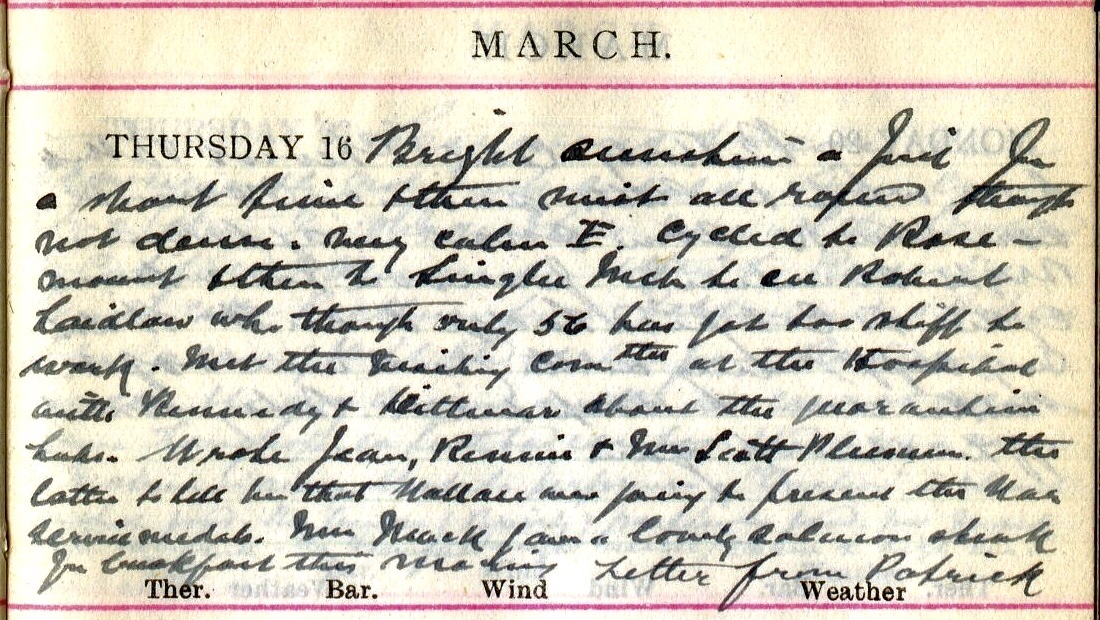 MARCH.
THURSDAY 16 Bright sunshine a first for
a short time then mist all round though
not dense. Very calm E. Cycled to Rose-
mount & then to Single to see Robert
Laidlaw who though only 56 has got too stiff to
work. Met the Visiting Com at the Hospital
with Kennedy & Dittmar about the quarantine
huts. Wrote Jean, Rennie & Mrs Scott Plummer. the
latter to tell her that Wallace was going to present the War
service medals. Mrs Mack gave a lovely salmon steak
for breakfast this morning Letter from Patrick
Ther. Bar. Wind Weather